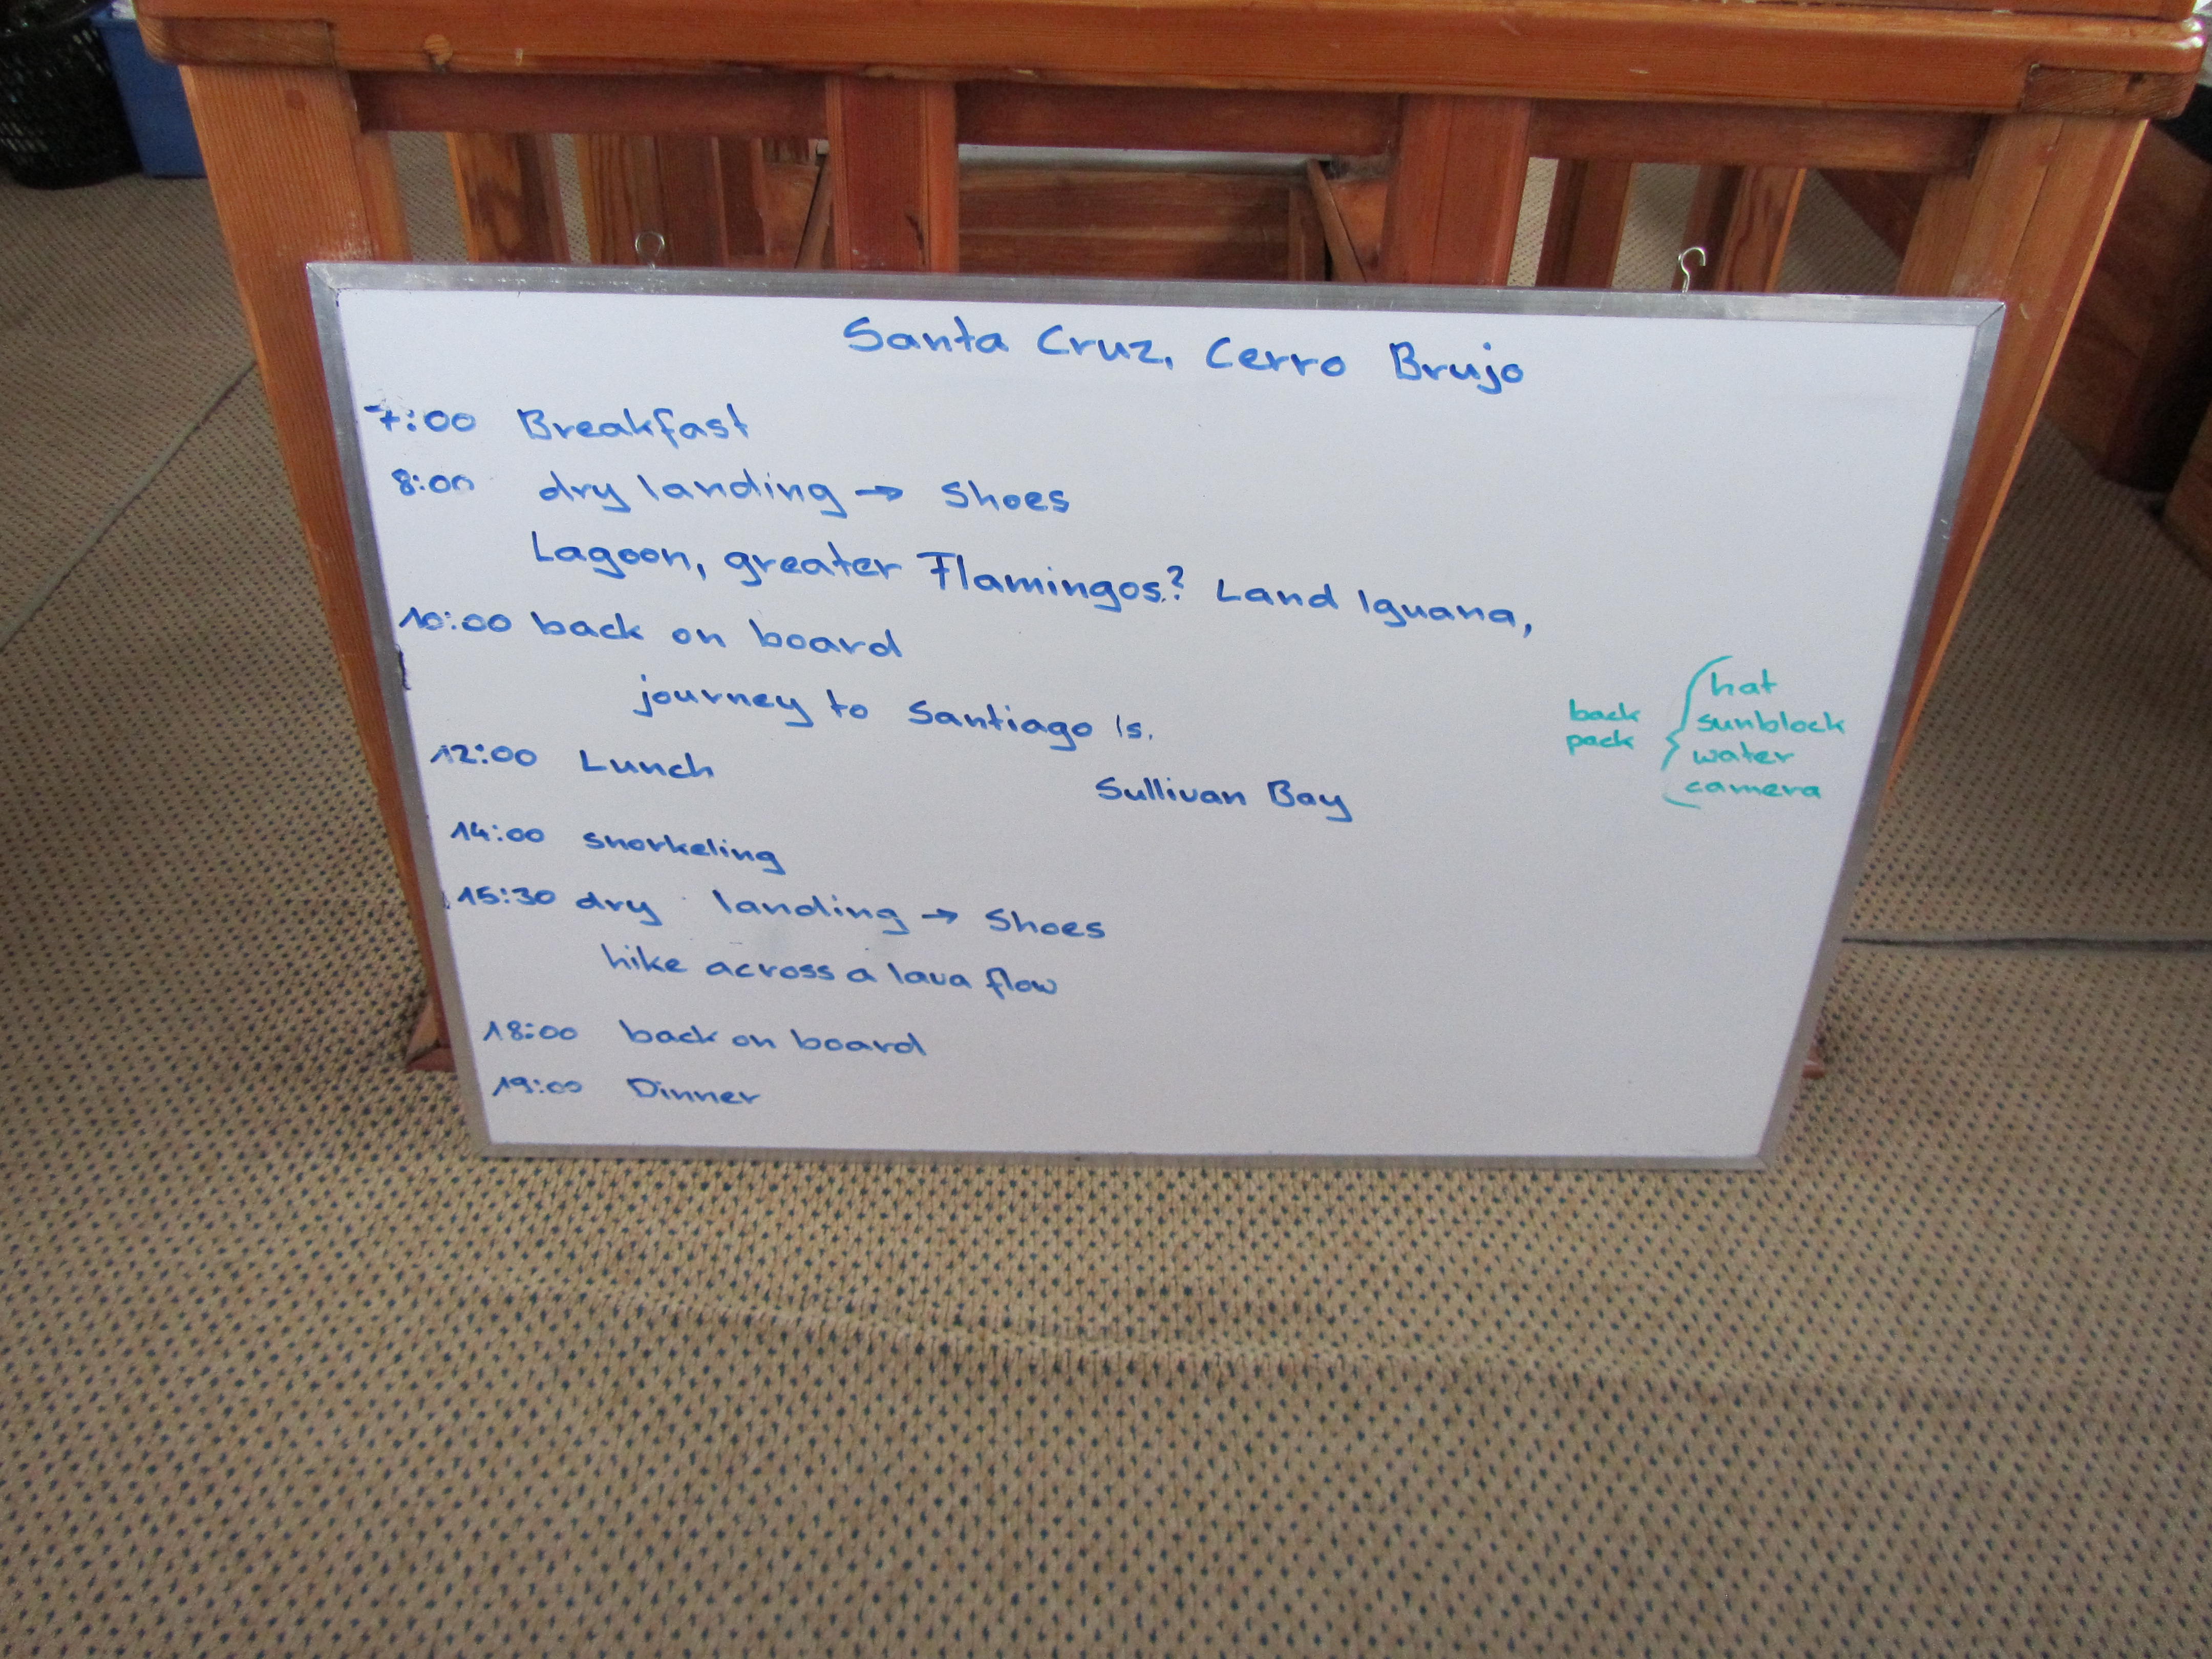 Santa Cruz, Cerro Brujo
7:00 Breakfast
8:00 dry landing → Shoes
Lagoon, greater Flamingos? Land Iguana,
10:00 back on board
journey to Santiago Is.
12:00 Lunch
Sullivan Bay
14:00 snorkeling
15:30 dry landing → Shoes
hike across a lava flow
18:00 back on board
19:00 Dinner
back
pack
hat
sunblock
water
camera